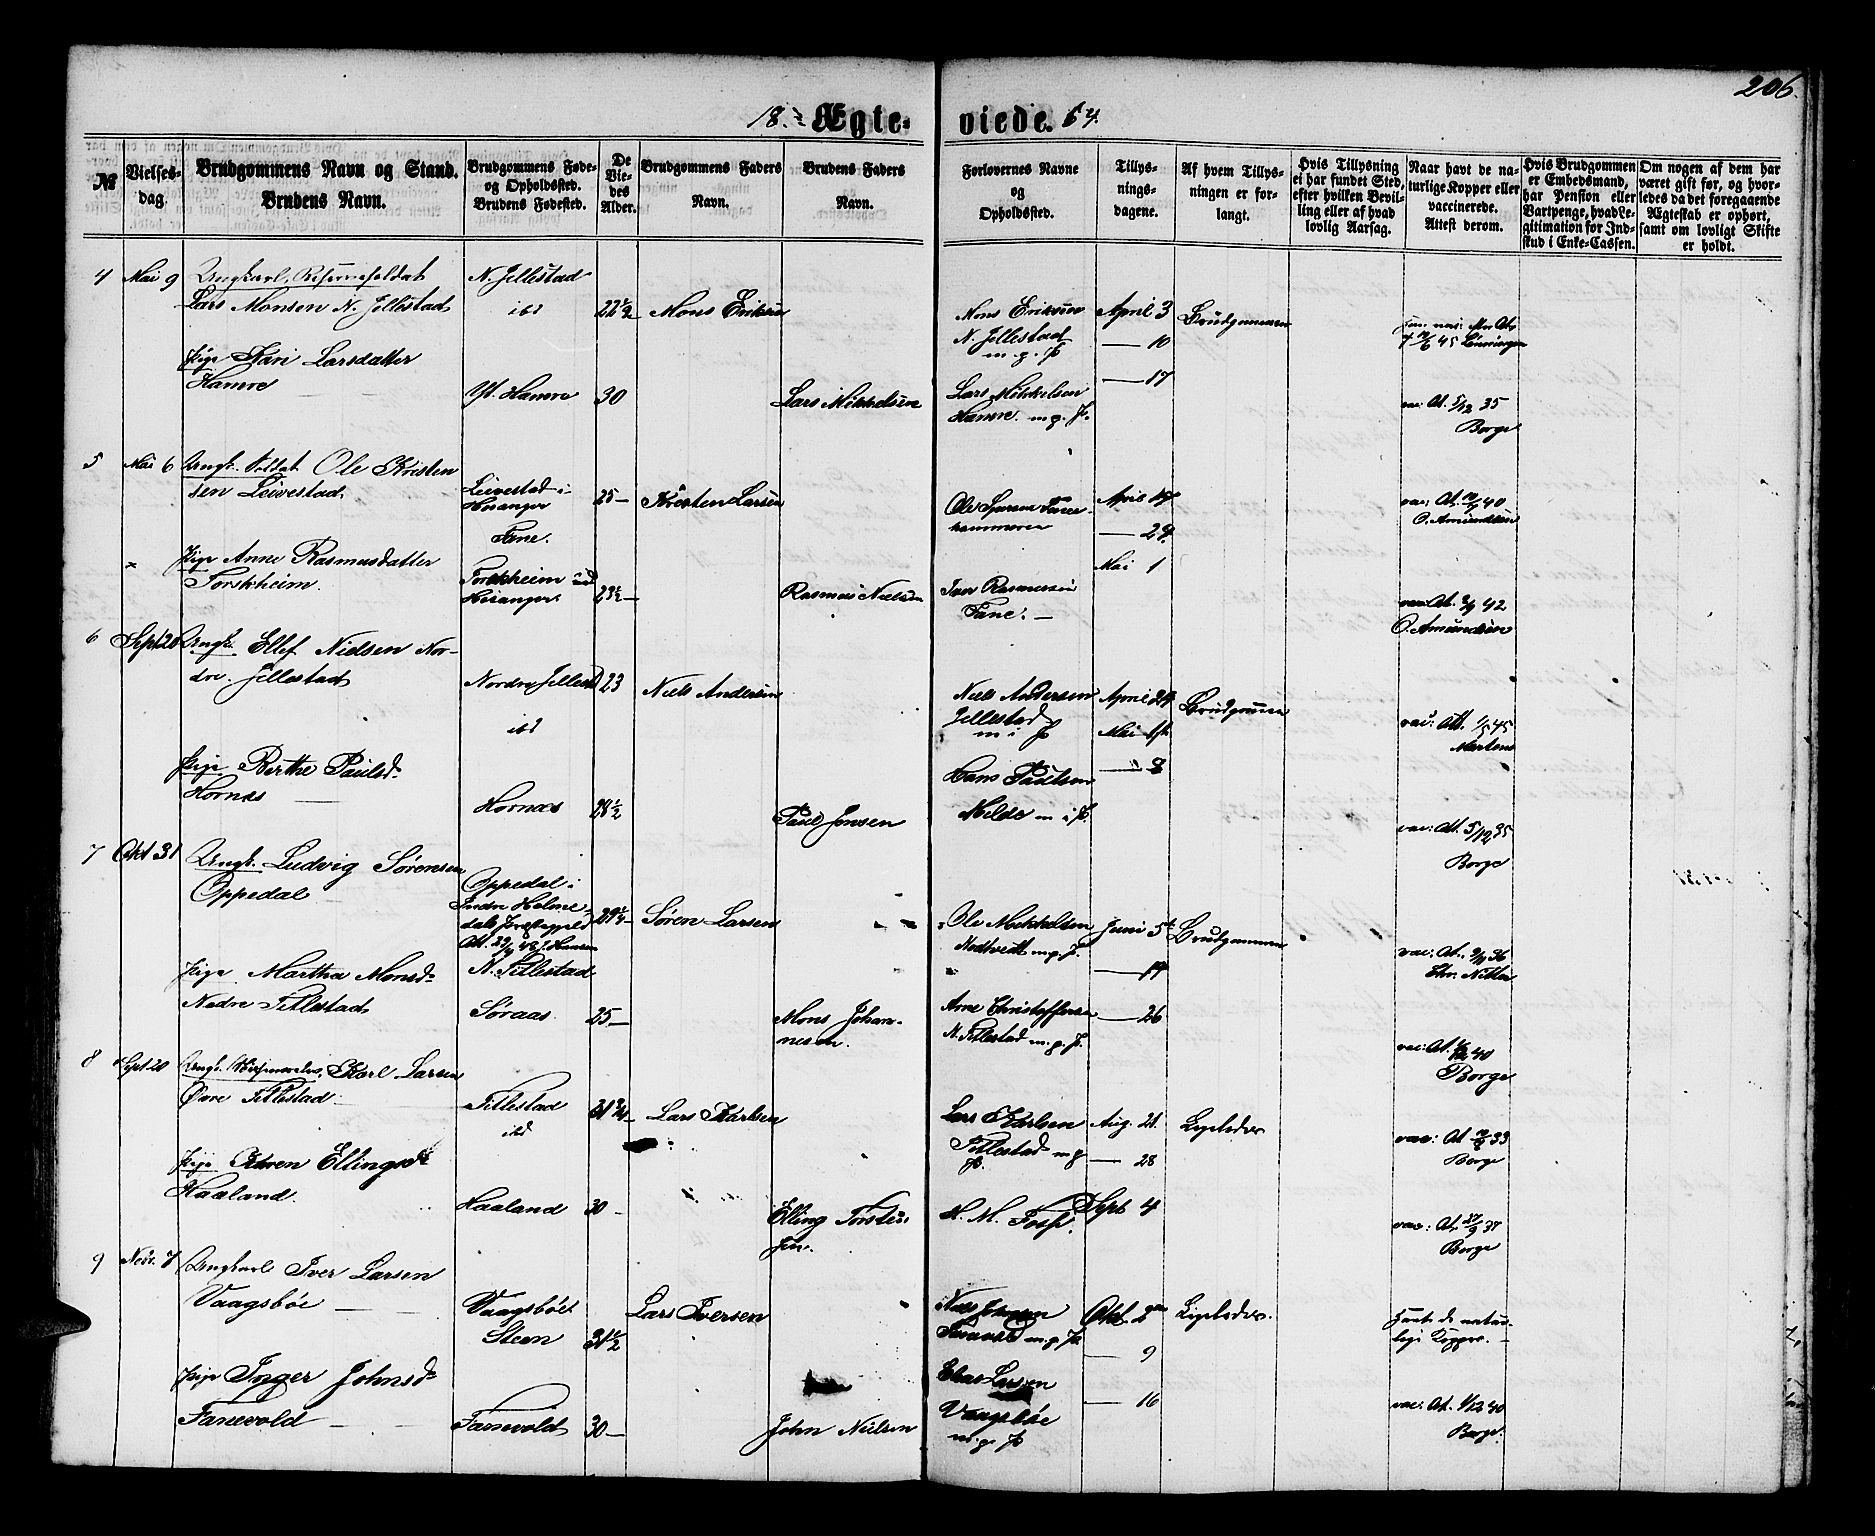 206.
18 Ægteviede. 64.
№
Vielses-
dag.
Brudgommens Navn og Stand.
Brudens Navn.
Brudgommens Føde-
og Opholdssted.
Brudens Fødested.
De
Vie-
des
Alder.
Brudgommens Faders
Navn.
Brudens Faders
Navn.
Forlovernes Navne
og
Opholdssted.
Tillys-
nings-
dagene.
Af hvem Tillys-
ningen er for-
langt.
Hvis Tillysning
ei har fundet Sted,
efter hvilken Bevil-
ling eller af hvad
lovlig Aarsag.
Naar havt de na-
turlige Kopper eller
vaccinerede.
Attest derom.
Hvis Brudgommen
er Embedsmand,
har Pension eller
Vartpenge, hvad Le-
gitimation for Ind-
skud i Enke-Cassen.
Om nogen af dem har
været gift før, og hvor-
ledes da det foregaaende
Ægteskab er ophørt,
samt om lovligt Skifte
er holdt.
4 Mai 9 Ungkarl, Reservesoldat
Lars Monsen N. Jellestad
N. Jellestad
ibd
22½ Mons Eriksen
Mons Eriksen
N. Jellestad
m. p. P.
April 3
— 10
— 17
Brudgommen
Pige Kari Larsdatter
Hamre
Yt. Hamre 30 Lars Mikkelsen
Lars Mikkelsen
Hamre m. p. P.
vac. At. 5/12 35
Borge
5 Mai 6 Ungk. Soldat Ole Kristen
sen Leivestad
Leivestad i
Hosanger
Fane.
25 — Kristen Larsen
April 17
— 24
Mai 1
vac: At. 40
O. Amundsen
Pige Anne Rasmusdatter
Torskheim
Torskheim
Hosanger
23½ — Rasmus Nielsen
Iver Rasmussen
Fane. —
vac. At. 42
O. Amundsen
6 Sept 20 Ungk. Ellef Nielsen Nor-
dre Jellestad
Nordre Jellestad
ibd
23 Niels Andersen
Niels Andersen
Jellestad
m i P
April 24
Mai 1
— 8
Brudgommen
vac: Att. 1/5 45
Martens
Pige Berthe Paulsd.
Hornæs —
Hornæs 28½ Paul Jonsen
Hans Paulsen
Milde m i P.
vac: At. 5/12 35
Borge
7 Okt 31 Ungk. Ludvig Sørensen
Oppedal —
Oppedal i
Indre Holme-
dals Præstegjeld
N. Titlestad
29¼ — Søren Larsen
Ole Mikkelsen
Nedtvedt m. p. P.
Juni 5te
— 19
— 26
Brudgommen
vac: At. 36
Chr. Nitter
Pige Martha Monsd.
Nedre Titlestad
Søraas 25 — Mons Johan-
nesen.
Arne Christoffersen
N. Titlestad m. p. P.
vac: At. 40
Borge
8 Sept 20 Karl Larsen
Øvre Titlestad
Titlestad
ibd
31¾ — Lars Karlsen
Lars Karlsen
Titlestad m p
P.
Aug. 21
— 28
Sept 4
Ligeledes
vac: At 33
Borge
Pige Ellingsd.
Haaland.
Haaland 30 — Elling Torsten-
sen.
vac: At. 27/9 37
Borge
9 Nov. 7 Ungkarl Iver Larsen
Vaagsbøe —
Vaagsbøe
Steen
31½ Lars Iversen
m. p. P.
Okt. 2den
— 9
— 16
Ligeledes.
havt de natur-
lige Kopper. —
Pige Inger Johnsd.
Fanevold —
Fanevold 30 — John Nielsen
Larsen
Vaagsbøe
m. p. P
vac: At. 1/12 40
Borge.